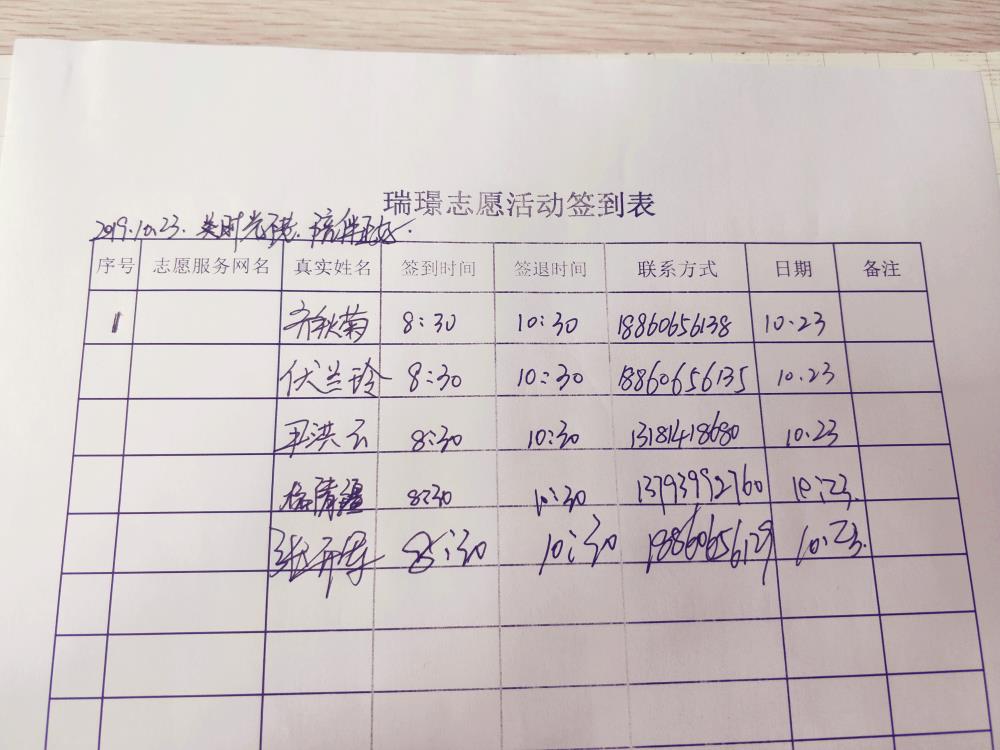 瑞璟志愿活动签到表
2019.10.23. 美时光
序号 志愿服务网名 真实姓名 签到时间 签退时间 联系方式 日期 备注
1 齐秋菊 8:30 10:30 18860656138 10.23
伏兰玲 8:30 10:30 18860656135 10.23
王洪云 8:30 10:30 13181418680 10.23
8:30 10:30 13793992760 10:23.
张 8:30 10:30 18860656129 10:23.